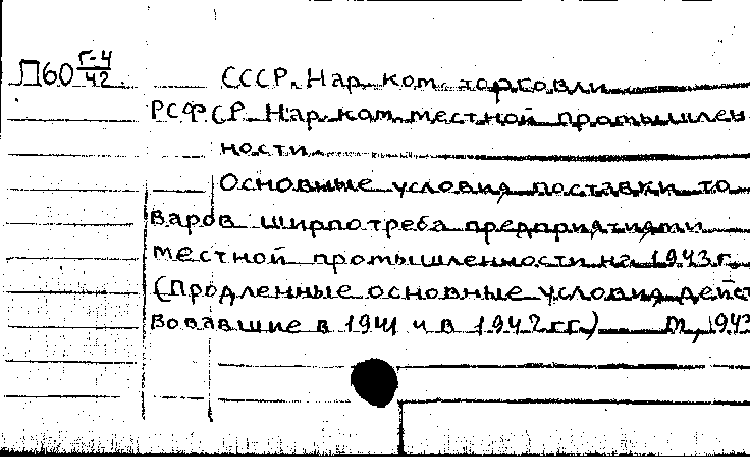 П60 Г-4/42. СССР. Нар. ком. торговли
РСФСР. Нар. ком. местной промышлен
ности.
Основные условия поставки то
варов ширпотреба предприятиями
местной промышленности на 1943 г.
(Продленные основные условия, дейст
вовавшие в 1941 и в 1942 гг.) М., 1943